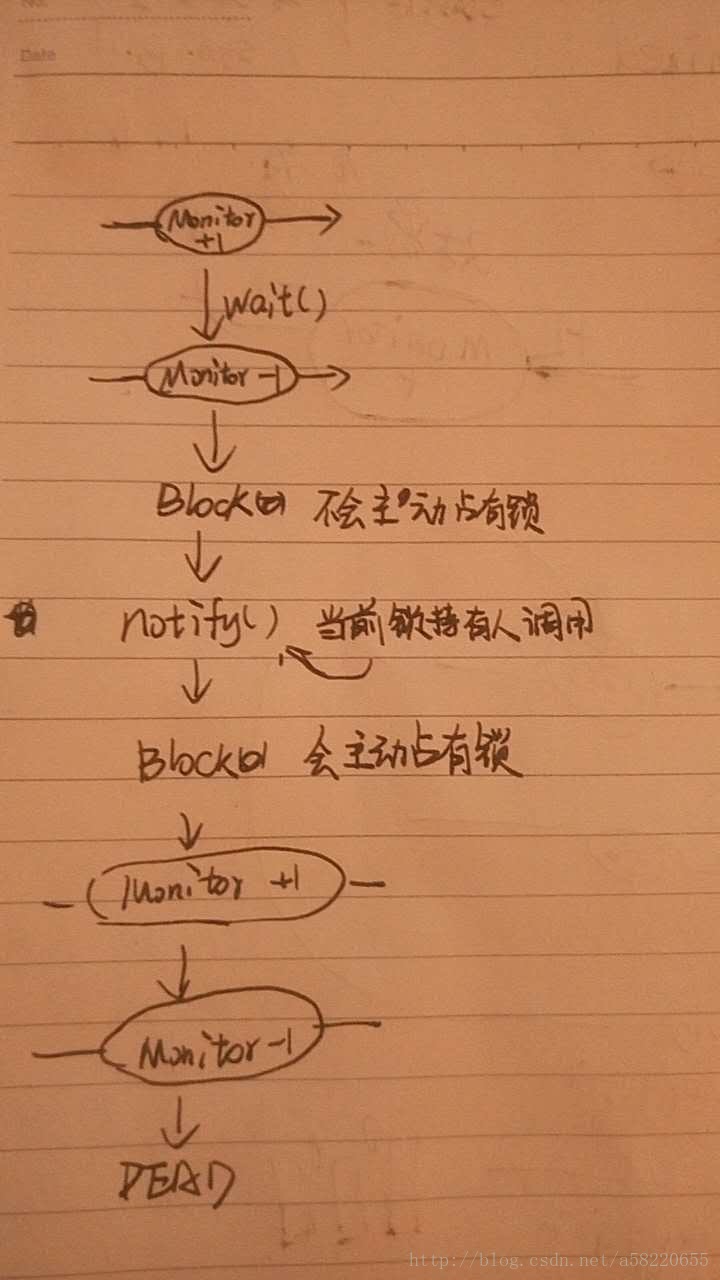 Date
Monitor
+1
wait()
Monitor -1
Block 不会主动占有锁
notify() 当前锁持有人调用
Block 会主动占有锁
Monitor +1
Monitor -1
DEAD
http://blog.csdn.net/a58220655